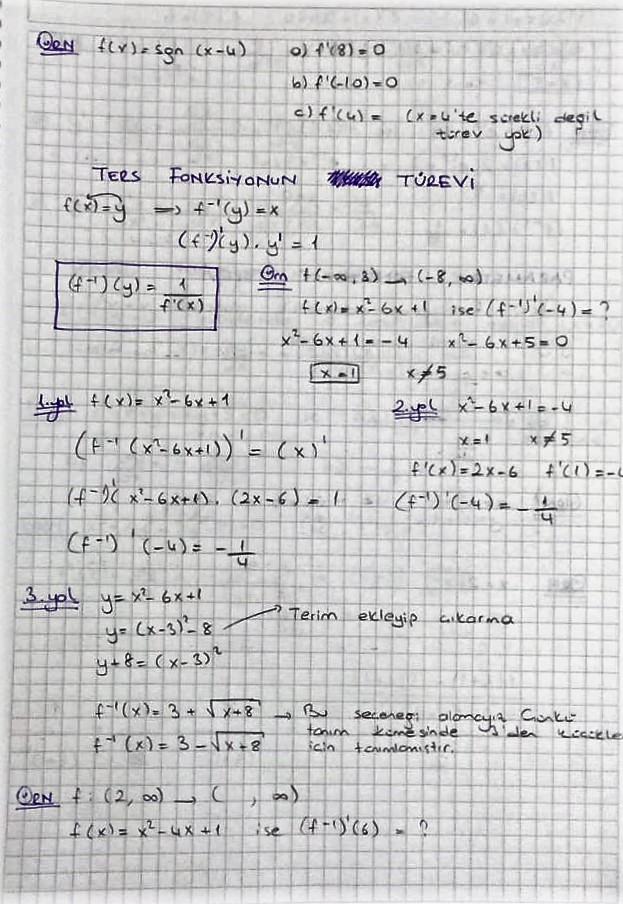 ÖRN f(x) = sgn (x-4) a) f'(8) = 0
b) f'(-10) = 0
c) f'(4) = (x=4'te sürekli değil
türev yok)
TERS FONKSİYONUN TÜREVİ
f(x) = y ⟹ f⁻¹(y) = x
(f⁻¹)'(y) . y' = 1
(f⁻¹)(y) = 1/f'(x)
Örn f(-∞, 3) → (-8, ∞)
f(x) = x²-6x+1 ise (f⁻¹)'(-4) = ?
x²-6x+1 = -4 x²-6x+5 = 0
x=1 x≠5
1.yol f(x) = x²-6x+1
(f⁻¹ (x²-6x+1))' = (x)'
(f⁻¹)'( x²-6x+1) . (2x-6) = 1
(f⁻¹)' (-4) = -1/4
2.yol x²-6x+1 = -4
x=1 x≠5
f'(x) = 2x-6 f'(1) = -4
(f⁻¹)'(-4) = -1/4
3.yol y = x²-6x+1
y = (x-3)²-8 → Terim ekleyip çıkarma
y+8 = (x-3)²
f⁻¹(x) = 3 + √x+8 → Bu seçeneği alamayız Çünkü
tanım kümesinde 3'den
f⁻¹(x) = 3 - √x+8 için tanımlanmıştır.
ÖRN f: (2, ∞) → ( , ∞)
f(x) = x²-4x+1 ise (f⁻¹)'(6) = ?